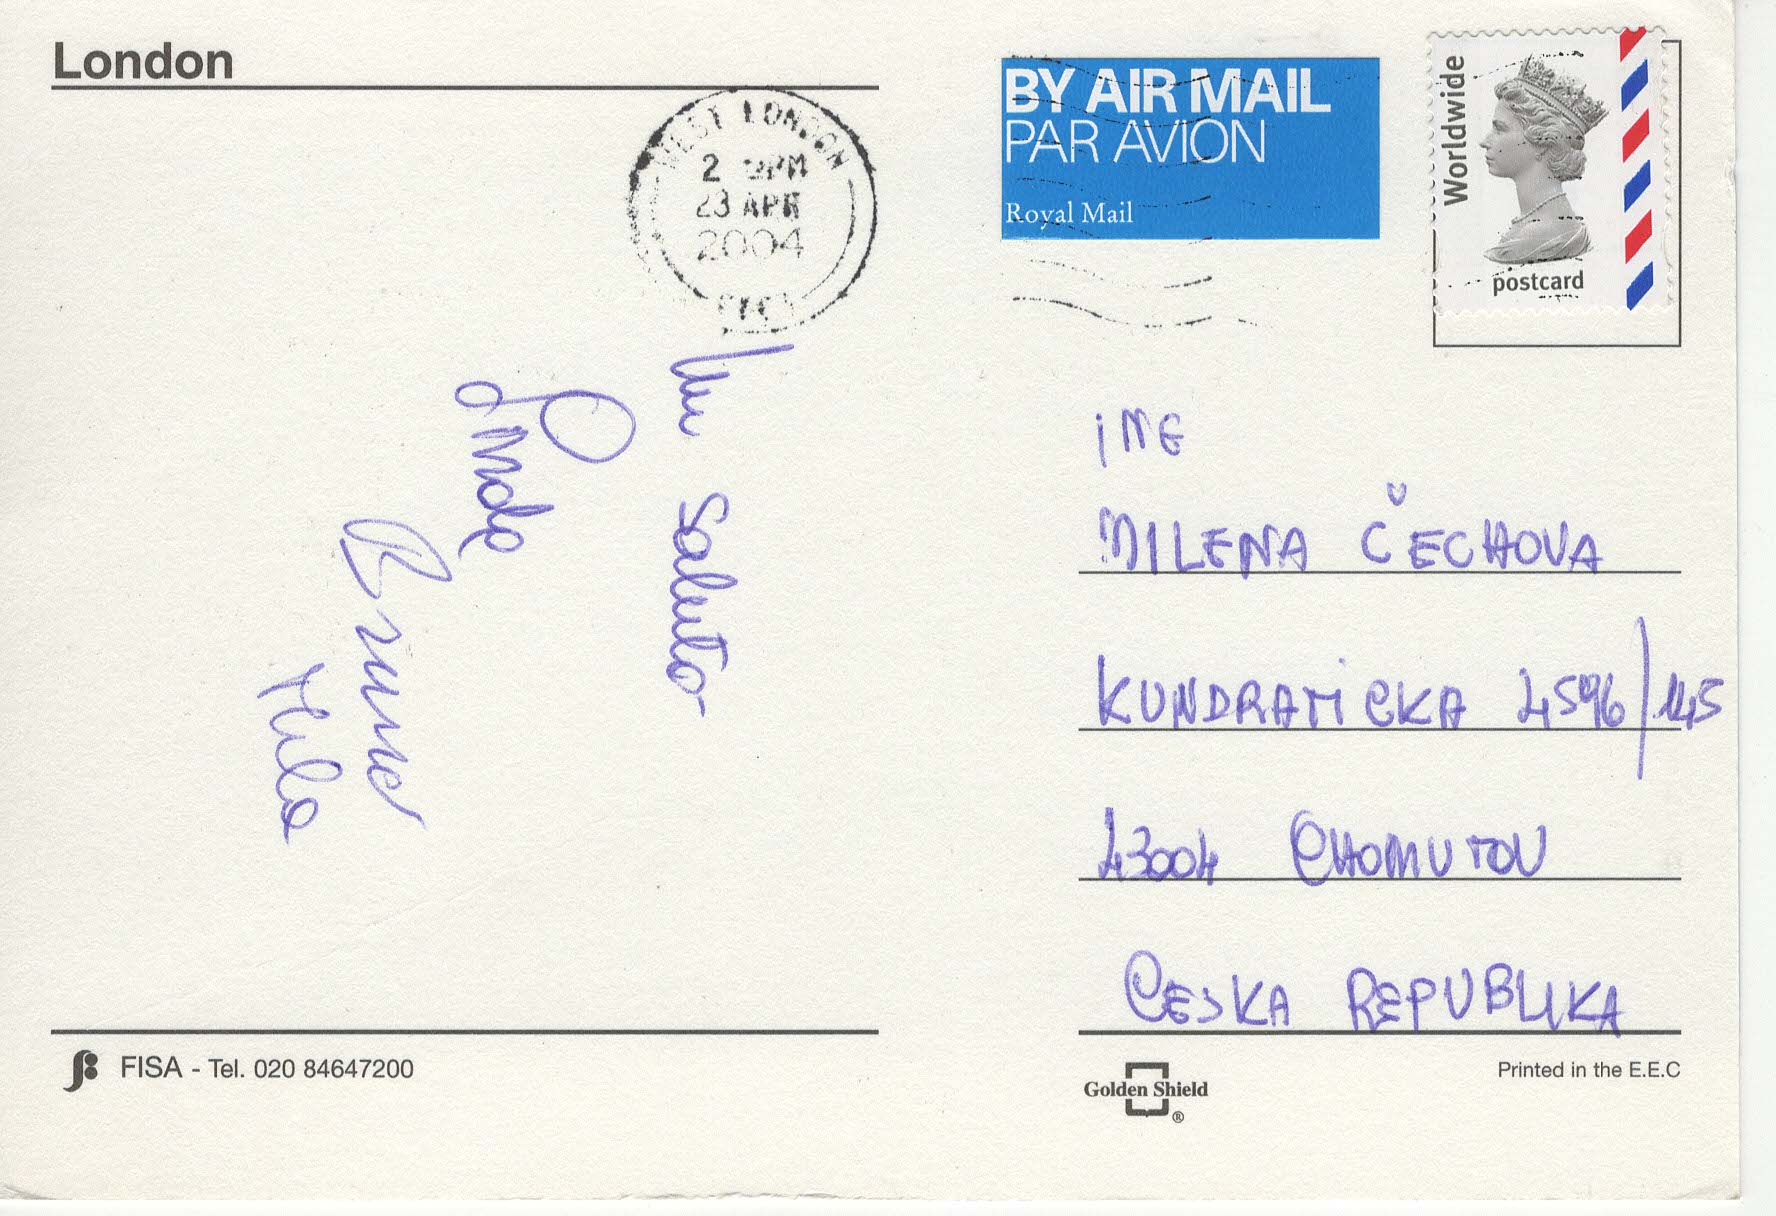 London
WEST LONDON
23 APR
2004
BY AIR MAIL
PAR AVION
Royal Mail
Worldwide
postcard
Un Saluto
Milo
MILENA ČECHOVA
KUNDRATICKA 4596/145
43004 CHOMUTOV
CESKA REPUBLIKA
FISA - Tel. 020 84647200
Golden Shield
®
Printed in the E.E.C